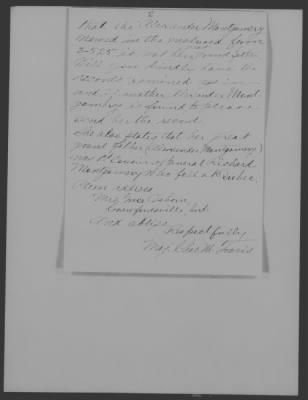 2
that the Alexander Montgomery
named in the enclosed form
3-525 is not her great grand father
Will you kindly have the
records examined
and if another Alexander Mont-
gomery is found to please
send her the record.
She also states that her great
grand father (Alexander Montgomery)
was 1st Cousin of General Richard
Montgomery who fell at Quebec.
Please address
Mrs. Osborn,
Crawfordsville, Ind.
And oblige
Respectfully
Maj. Chas. M. Travis